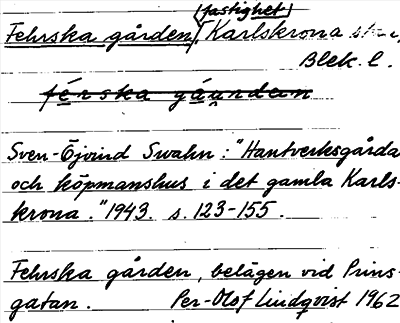 (fastighet)
Fehrska gården, Karlskrona
Blek. l.
férska gáu̯ndən
Sven-Öjvind Swahn: "Hantverksgårda
och köpmanshus i det gamla Karls-
krona." 1943 s. 123-155.
Fehrska gården, belägen vid Prins-
gatan. Per-Olof Lindqvist 1962